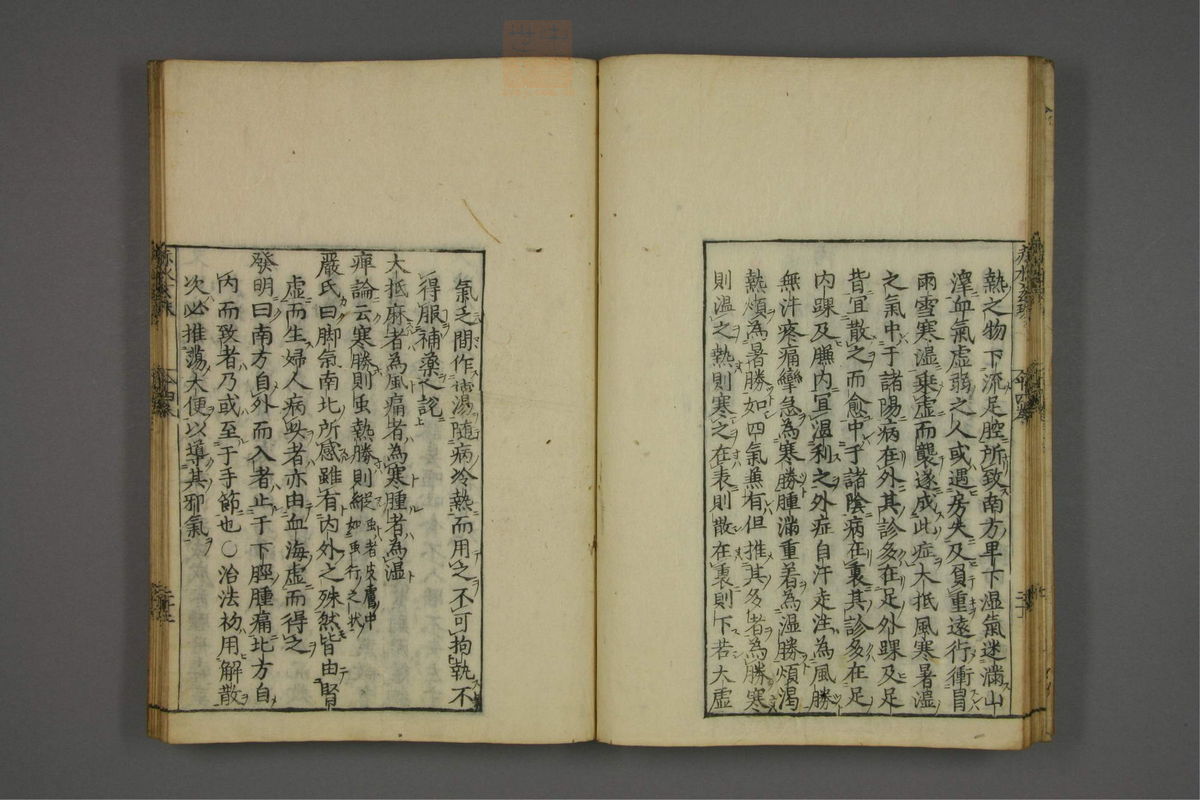 熱之物下流足腔所致南方卑下湿氣迷滿山
澤血氣虛弱之人或遇房失及負重遠行衝冒
雨雪寒湿乗虛而襲遂成此症大抵風寒暑湿
之氣中于諸陽病在外其診多在足外踝及足
皆宜散之而愈中于諸陰病在裏其診多在足
内踝及臁内宜温利之外症自汗走注為風勝
無汗疼痛攣急為寒勝腫滿重着為湿勝煩渴
熱煩為暑勝如四氣兼有但推其多者為勝寒
則温之熱則寒之在表則散在裏則下若大虛
氣乏間作湯隨病冷熱而用之不可拘執不
得服補藥之說
大抵麻者為風痛者為寒腫者為湿
痺論云寒勝則虫熱勝則縱虫者皮膚中如虫行之状
嚴氏曰脚氣南北所感雖有内外之殊然皆由腎
虛而生婦人病此者亦由血海虛而得之
發明曰南方自外而入者止于下脛腫痛北方自
内而致者乃或至于手節也○治法初用解散
次必推蕩大便以導其邪氣